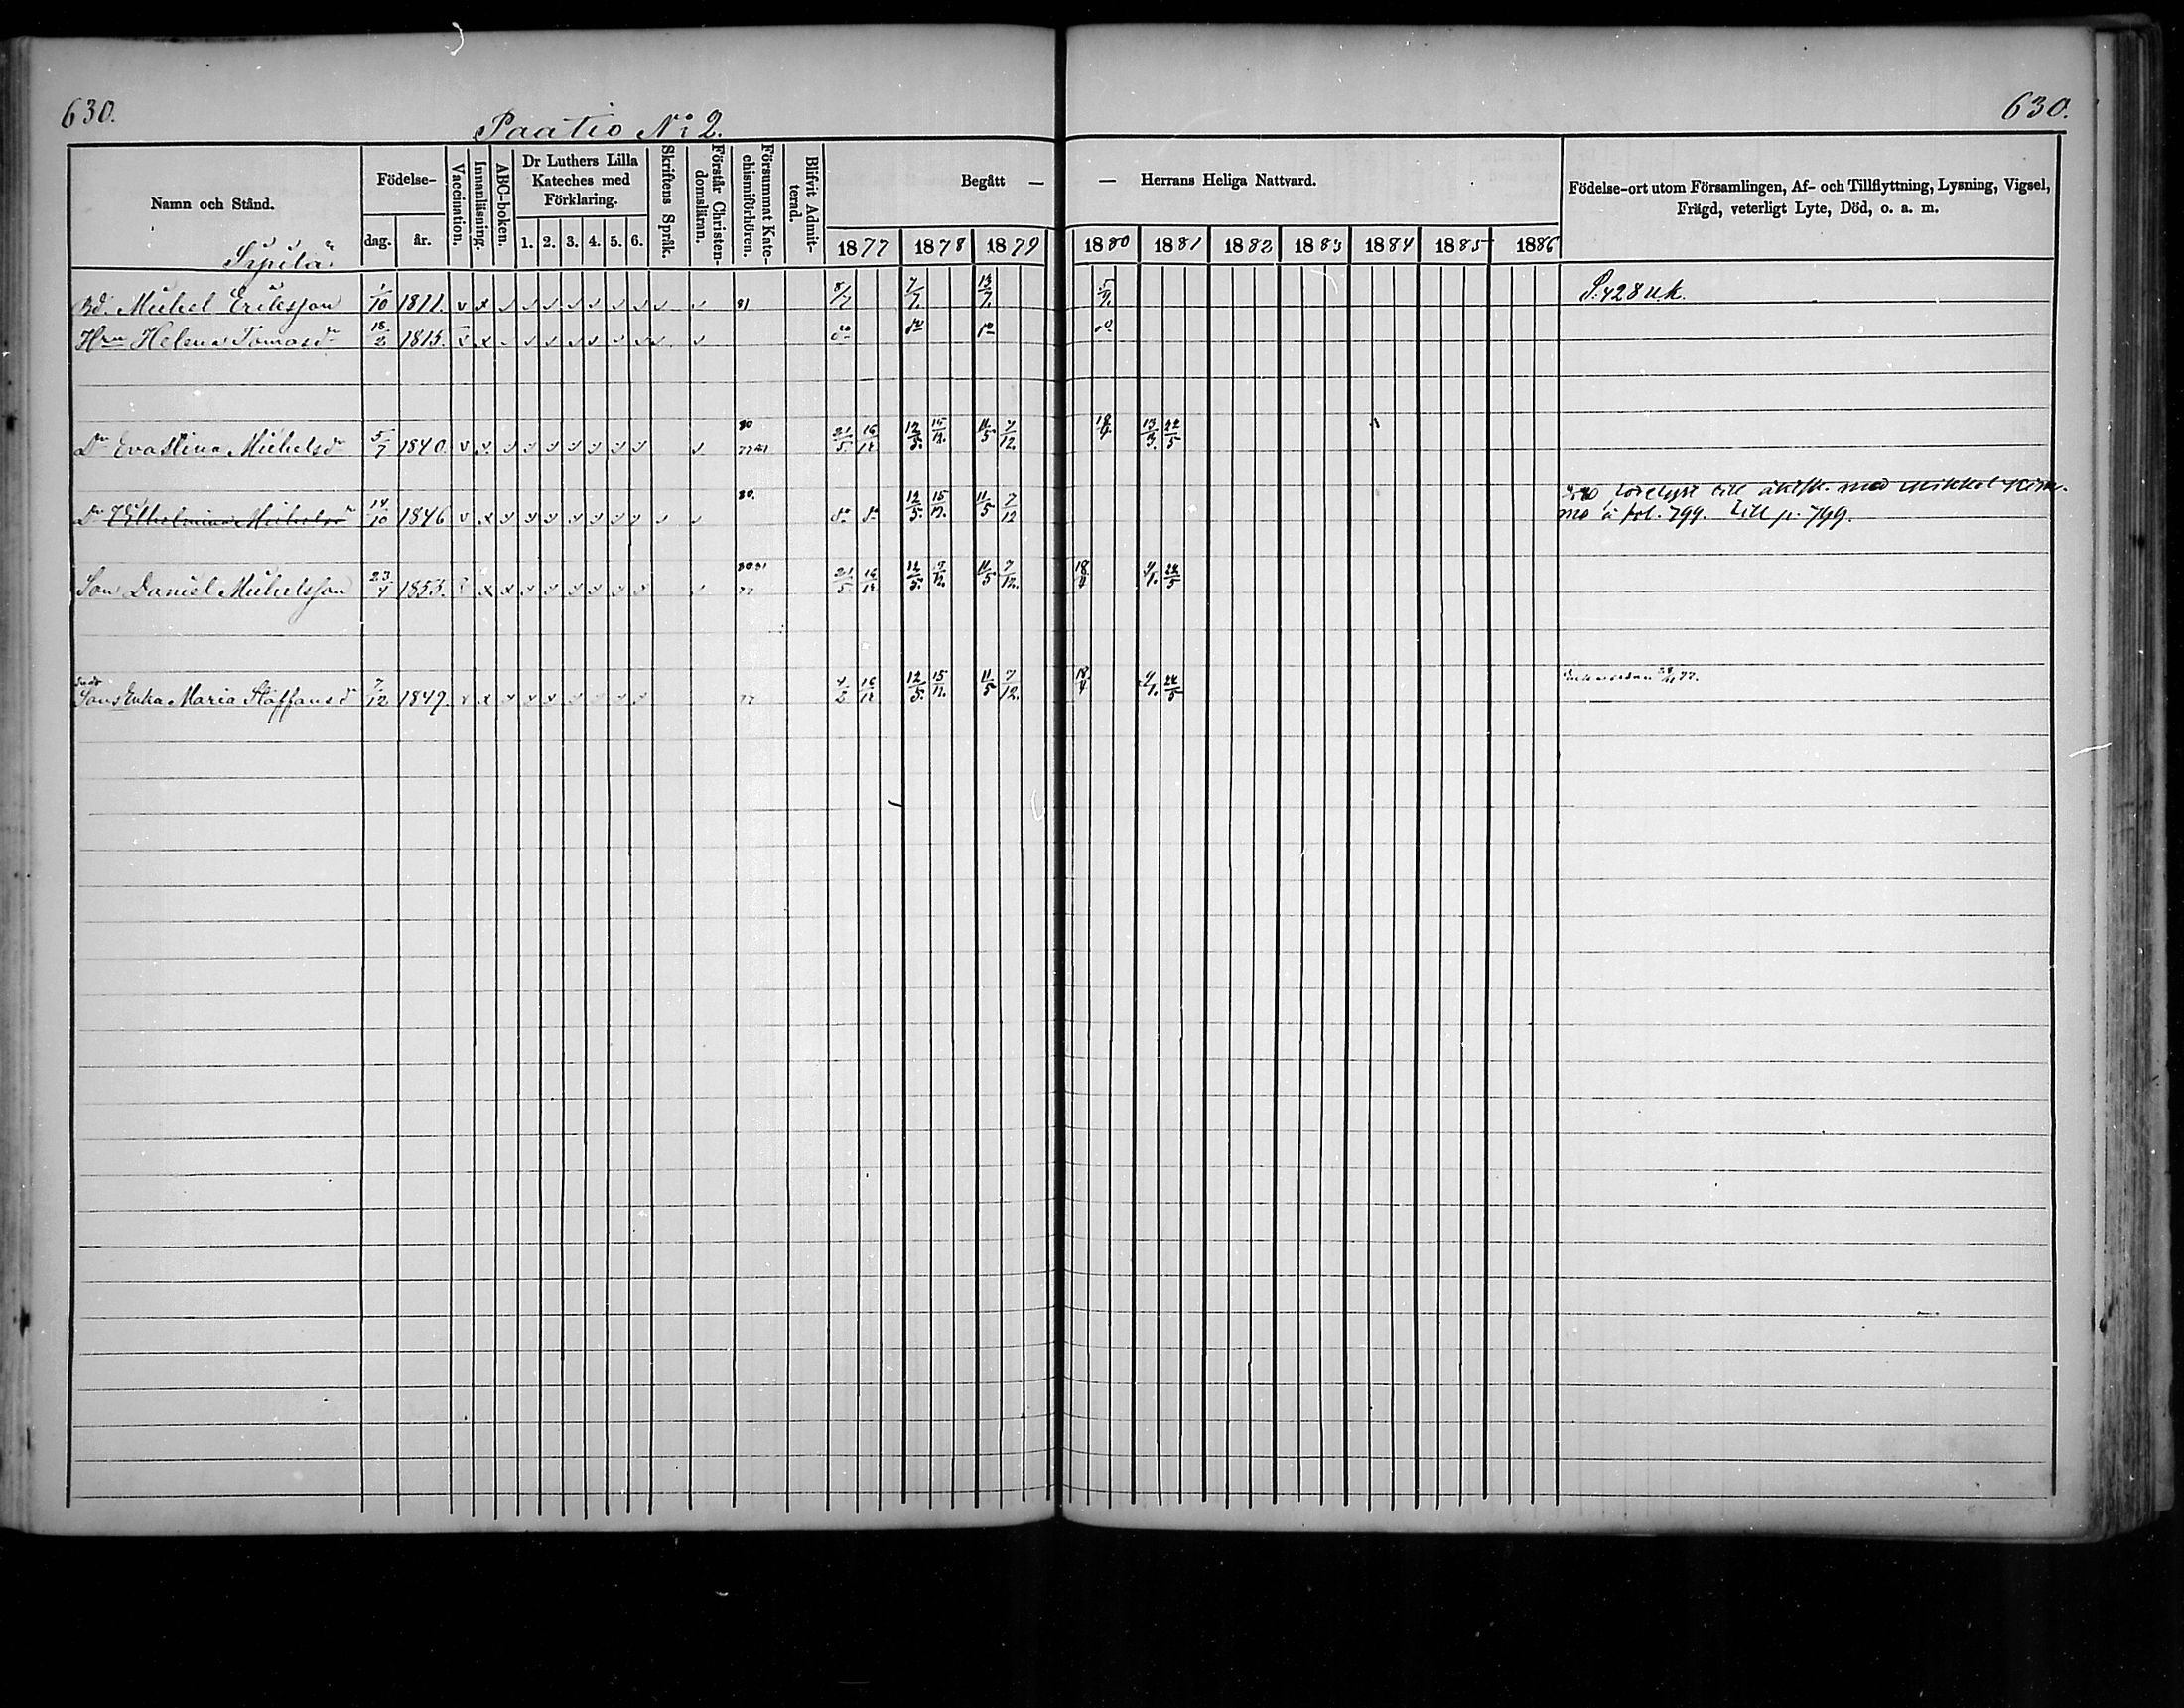 630.
630.
Paatio № 2.
Namn och Stånd.
Födelse-
dag.
år.
Vaccination.
Innanläsning.
ABC-boken.
Dr Luthers Lilla
Kateches med
Förklaring.
1. 2. 3. 4. 5. 6.
Skriftens Språk.
Förstår Christen-
domsläran.
Försummat Kate-
chismiförhören.
Blifvit Admit-
terad.
Begått — — Herrans Heliga Nattvard.
1877 1878 1879 1880 1881 1882 1883 1884 1885 1886
Födelse-ort utom Församlingen, Af- och Tillflyttning, Lysning, Vigsel,
Frägd, veterligt Lyte, Död, o. a. m.
Bd. Michel Eriksson 1/10 1811. v x 81 8/7 7/7. 13/7. 5/9. P. 428 u.k.
Hru Helena Tomasdr 18/2 1815. do do do do
Dr Eva Stina Michelsdr 5/7 1840. 80 21/5. 16/12 12/5. 15/12. 11/5 7/12 18/4 13/3. 22/5
Dr Vilhelmina Michelsdr 14/10 1846 80. do do 12/5. 15/12. 11/5 7/12
till p. 799.
Son Daniel Michelsson 23/4 1853. 80 81 77 21/5 16/12 12/5. 11/5 7/12. 18/4 22/5
Sons Enka Maria Staffansd 7/12 1849. 77 16/12 12/5. 15/12. 11/5 7/12. 18/4 22/5